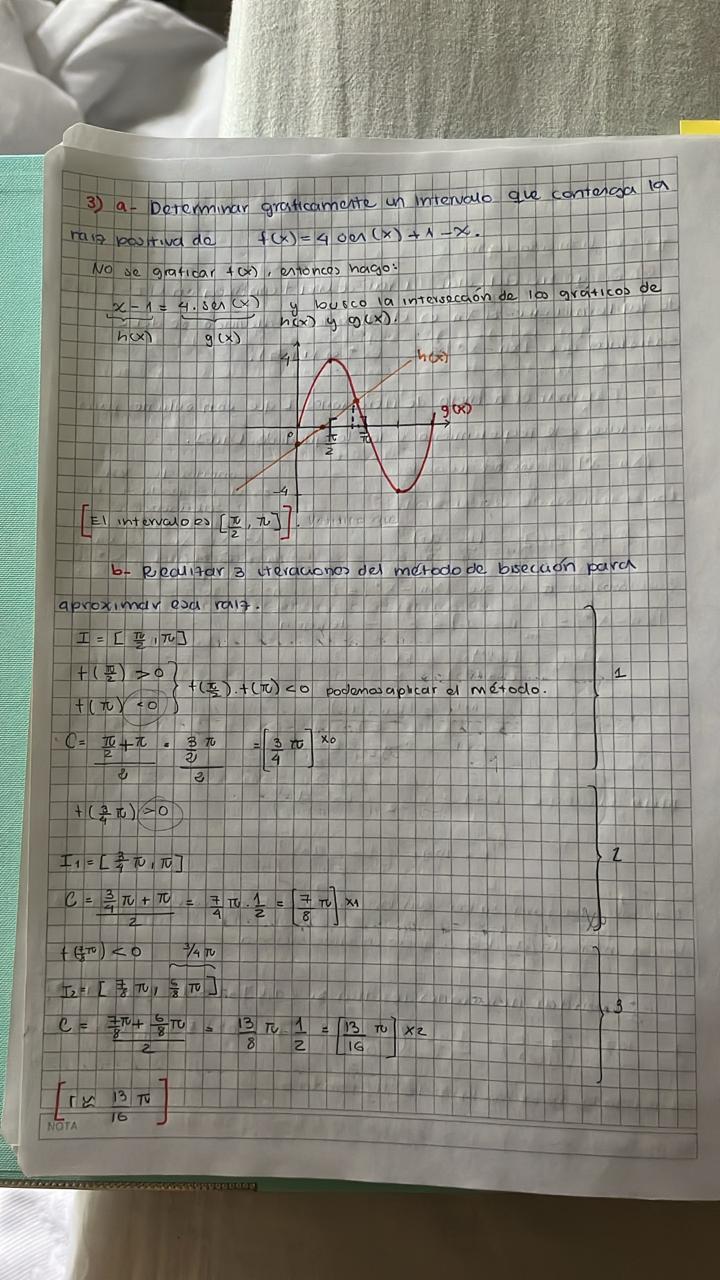 3) a- Determinar graficamente un intervalo que contenga la
raiz positiva de f(x) = 4 sen(x) + 1 - x.
No se graficar f(x), entonces hago:
x - 1 = 4. sen(x) y busco la intersección de los gráficos de
h(x) g(x) h(x) y g(x).
4
h(x)
g(x)
0
π/2
π
-4
[El intervalo es [π/2, π]].
b- Realizar 3 iteraciones del método de bisección para
aproximar esa raiz.
I = [π/2, π]
f(π/2) > 0
f(π/2) . f(π) < 0 podemos aplicar el método.
f(π) < 0
1
C = (π/2 + π)/2 = (3/2 π)/2 = [3/4 π] x0
f(3/4 π) > 0
I1 = [3/4 π, π]
2
C = (3/4 π + π)/2 = 7/4 π . 1/2 = [7/8 π] x1
f(7/8 π) < 0 3/4 π
I2 = [7/8 π, 6/8 π]
3
C = (7/8 π + 6/8 π)/2 = 13/8 π 1/2 = [13/16 π] x2
[r ≈ 13/16 π]
NOTA